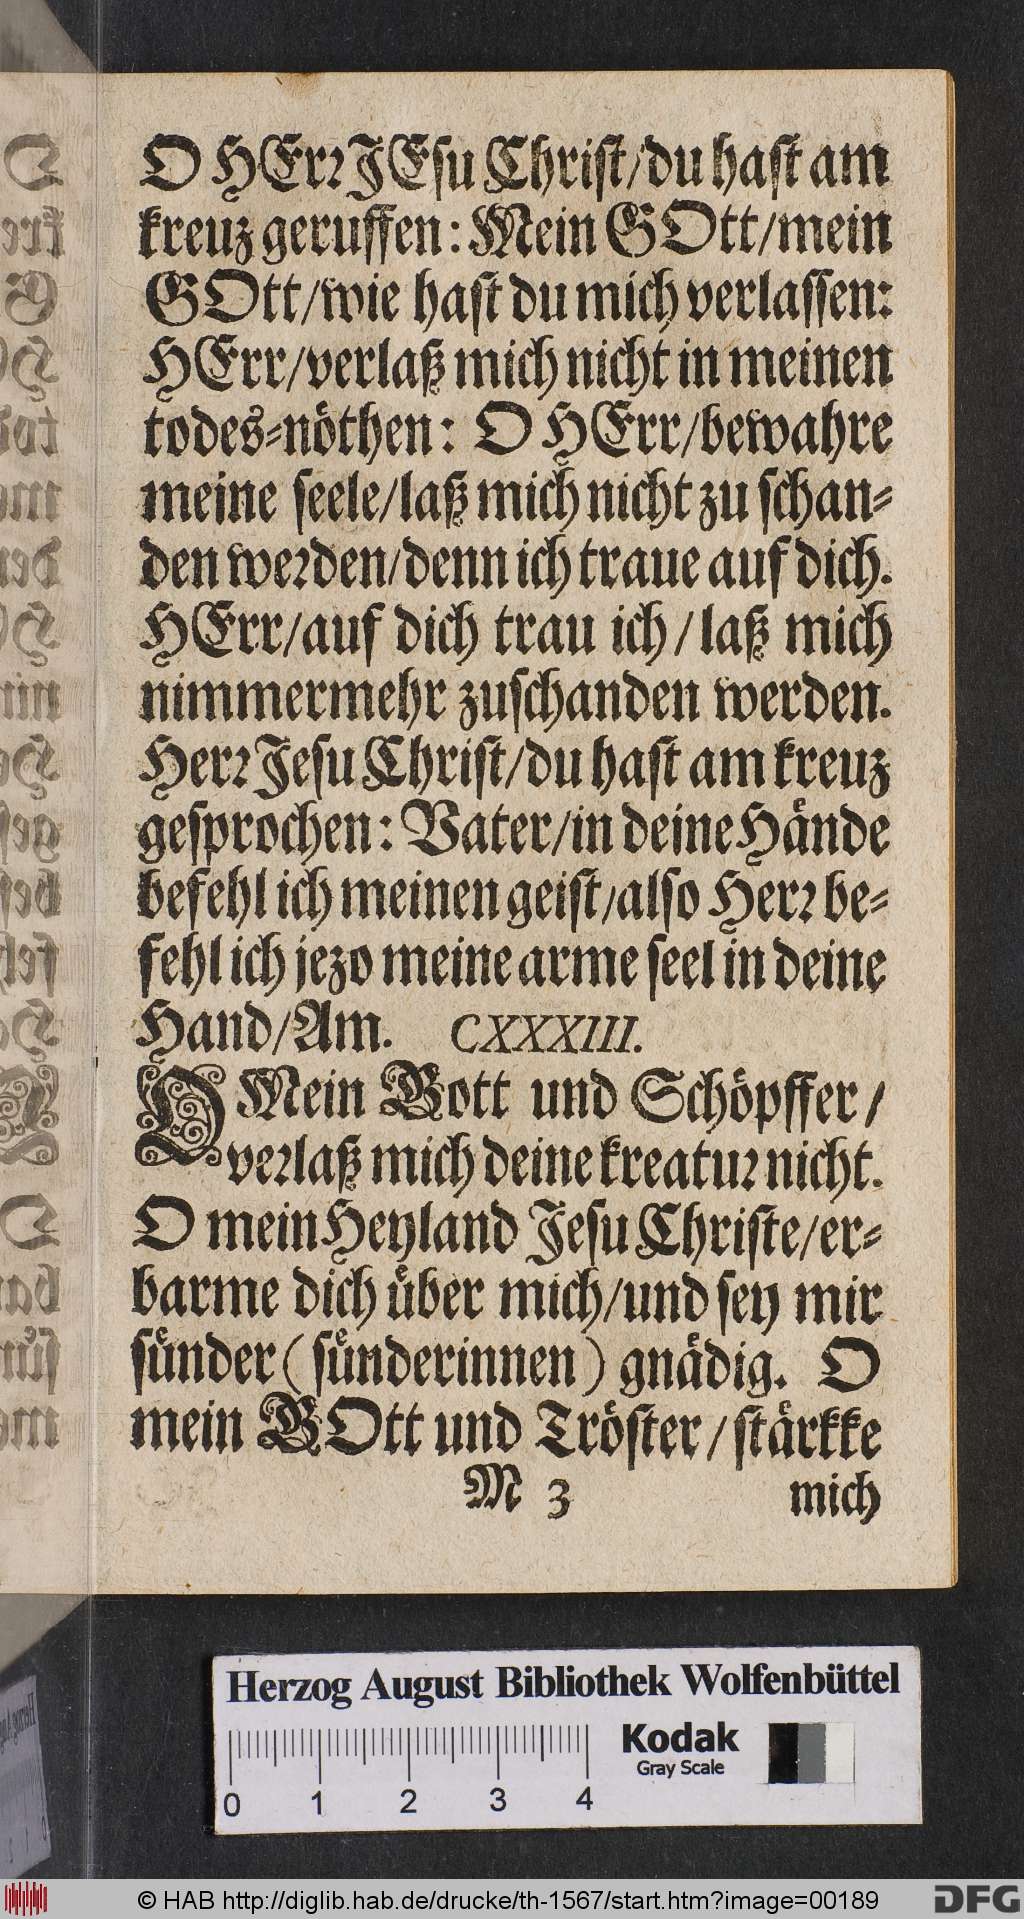 O HErr JEsu Christ/du hast am
kreuz geruffen: Mein GOtt/mein
GOtt/wie hast du mich verlassen:
HErr/verlaß mich nicht in meinen
todes-nöthen: O HErr/bewahre
meine seele/laß mich nicht zu schan-
den werden/denn ich traue auf dich.
HErr/auf dich trau ich/laß mich
nimmermehr zuschanden werden.
Herr Jesu Christ/du hast am kreuz
gesprochen: Vater/in deine Hände
befehl ich meinen geist/also Herr be-
fehl ich jezo meine arme seel in deine
Hand/Am. CXXXIII.
O Mein Gott und Schöpffer/
verlaß mich deine kreatur nicht.
O mein Heyland Jesu Christe/er-
barme dich über mich/und sey mir
sünder (sünderinnen) gnädig. O
mein GOtt und Tröster/stärkke
M 3 mich
Herzog August Bibliothek Wolfenbüttel
Kodak
Gray Scale
0 1 2 3 4
© HAB http://diglib.hab.de/drucke/th-1567/start.htm?image=00189
DFG